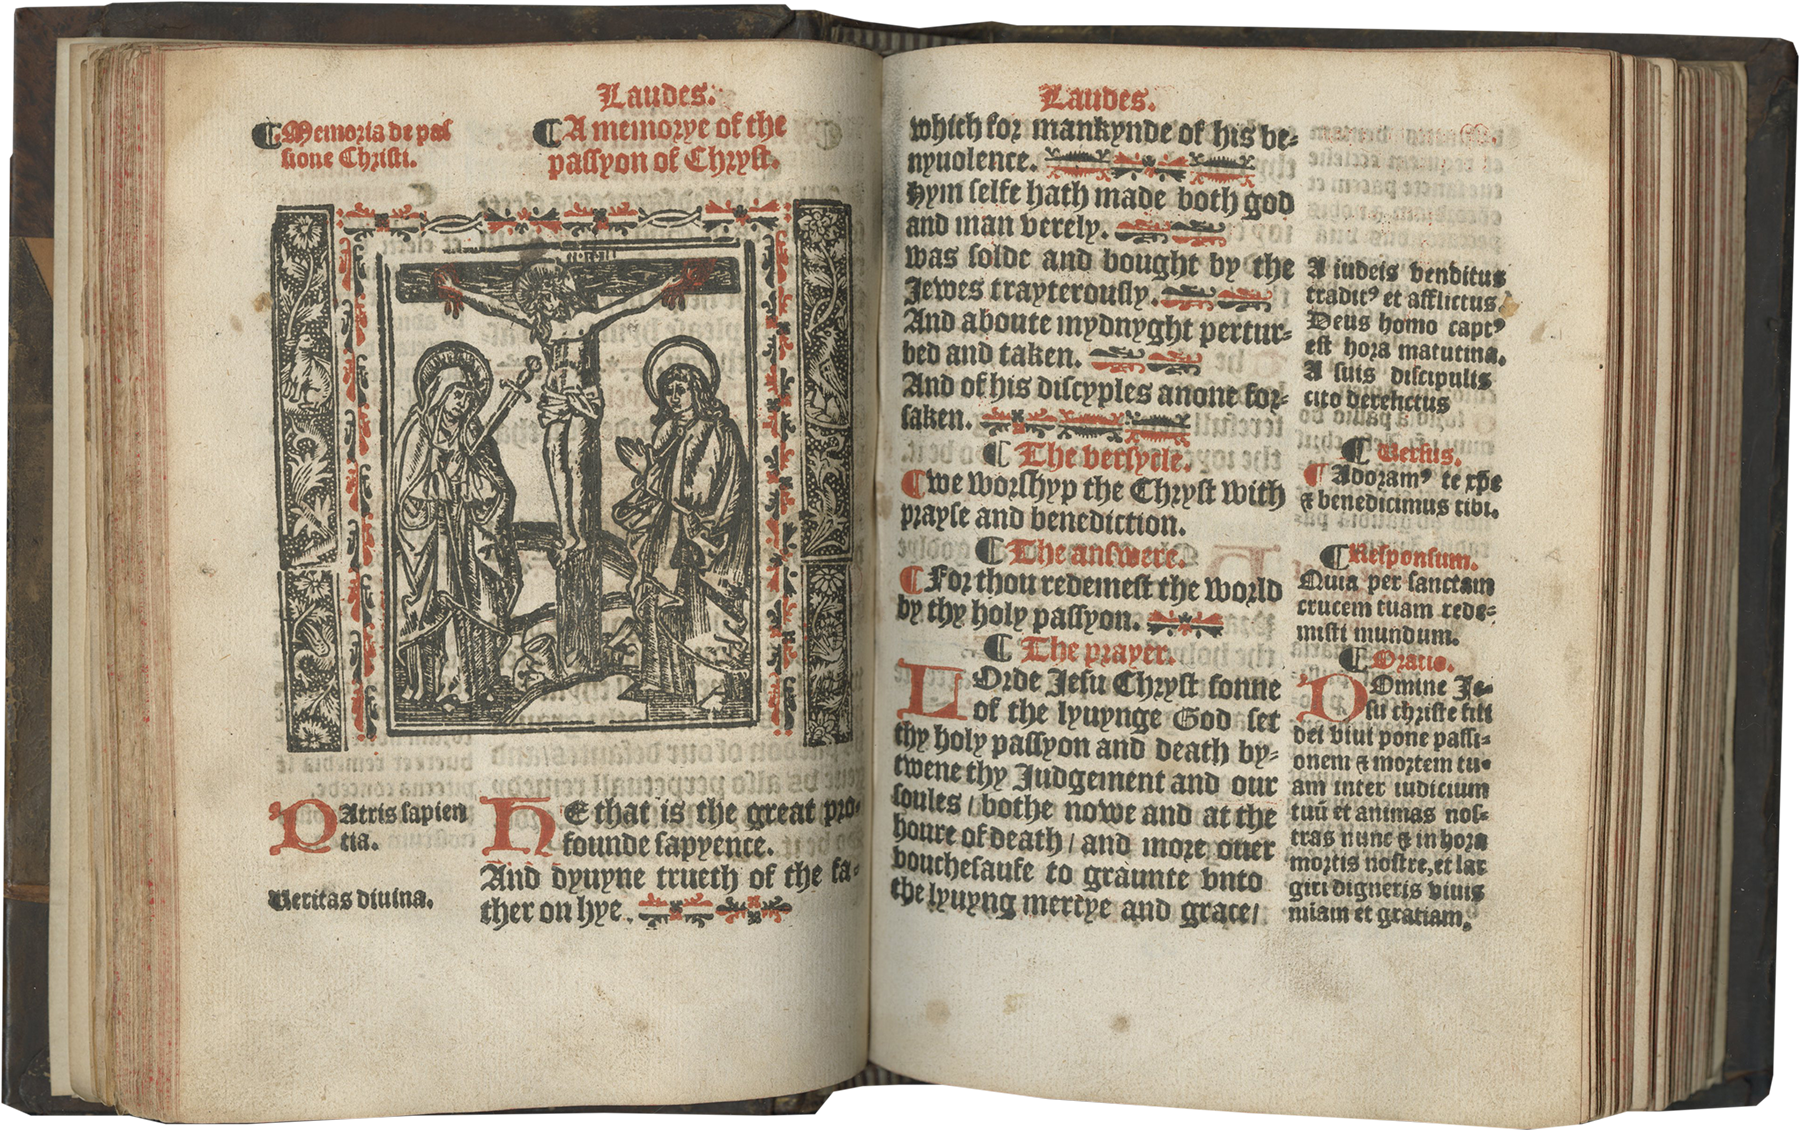 Laudes.
¶ Memoria de pas
sione Christi.
¶ A memorye of the
passyon of Chryst.
PAtris sapien
tia.
Veritas divina.
HE that is the great pro-
founde sapyence.
And dyuyne trueth of the fa-
ther on hye.
Laudes.
which for mankynde of his be-
nyuolence.
Hym selfe hath made both god
and man verely.
was solde and bought by the
Jewes trayterously.
And aboute mydnyght pertur-
bed and taken.
And of his discyples anone for-
saken.
¶ The versycle.
¶ we worshyp the Chryst with
prayse and benediction.
¶ The answere.
¶ For thou redemest the world
by thy holy passyon.
¶ The prayer.
LOrde Jesu Chryst sonne
of the lyuynge God set
thy holy passyon and death by-
twene thy Judgement and our
soules / bothe nowe and at the
houre of death / and more ouer
vouchesaufe to graunte vnto
the lyuyng mercye and grace /
A iudeis venditus
tradit⁹ et afflictus
Deus homo capt⁹
est hora matutina.
A suis discipulis
cito derelictus
¶ Versus.
¶ Adoram⁹ te xp̄e
& benedicimus tibi.
¶ Responsum.
Quia per sanctam
crucem tuam rede-
misti mundum.
¶ Oratio.
DOmine Je-
su christe fili
dei viui pone passi-
onem & mortem tu-
am inter iudicium
tuū et animas nos-
tras nunc & in hora
mortis nostre, et lar
giri digneris viuis
miam et gratiam.